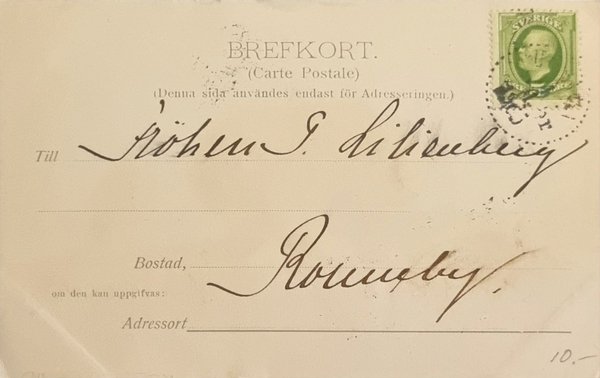 BREFKORT.
(Carte Postale)
(Denna sida användes endast för Adresseringen.)
SVERIGE
Till Fröken T. Lilienberg
Bostad,
om den kan uppgifvas:
Ronneby.
Adressort
10.-